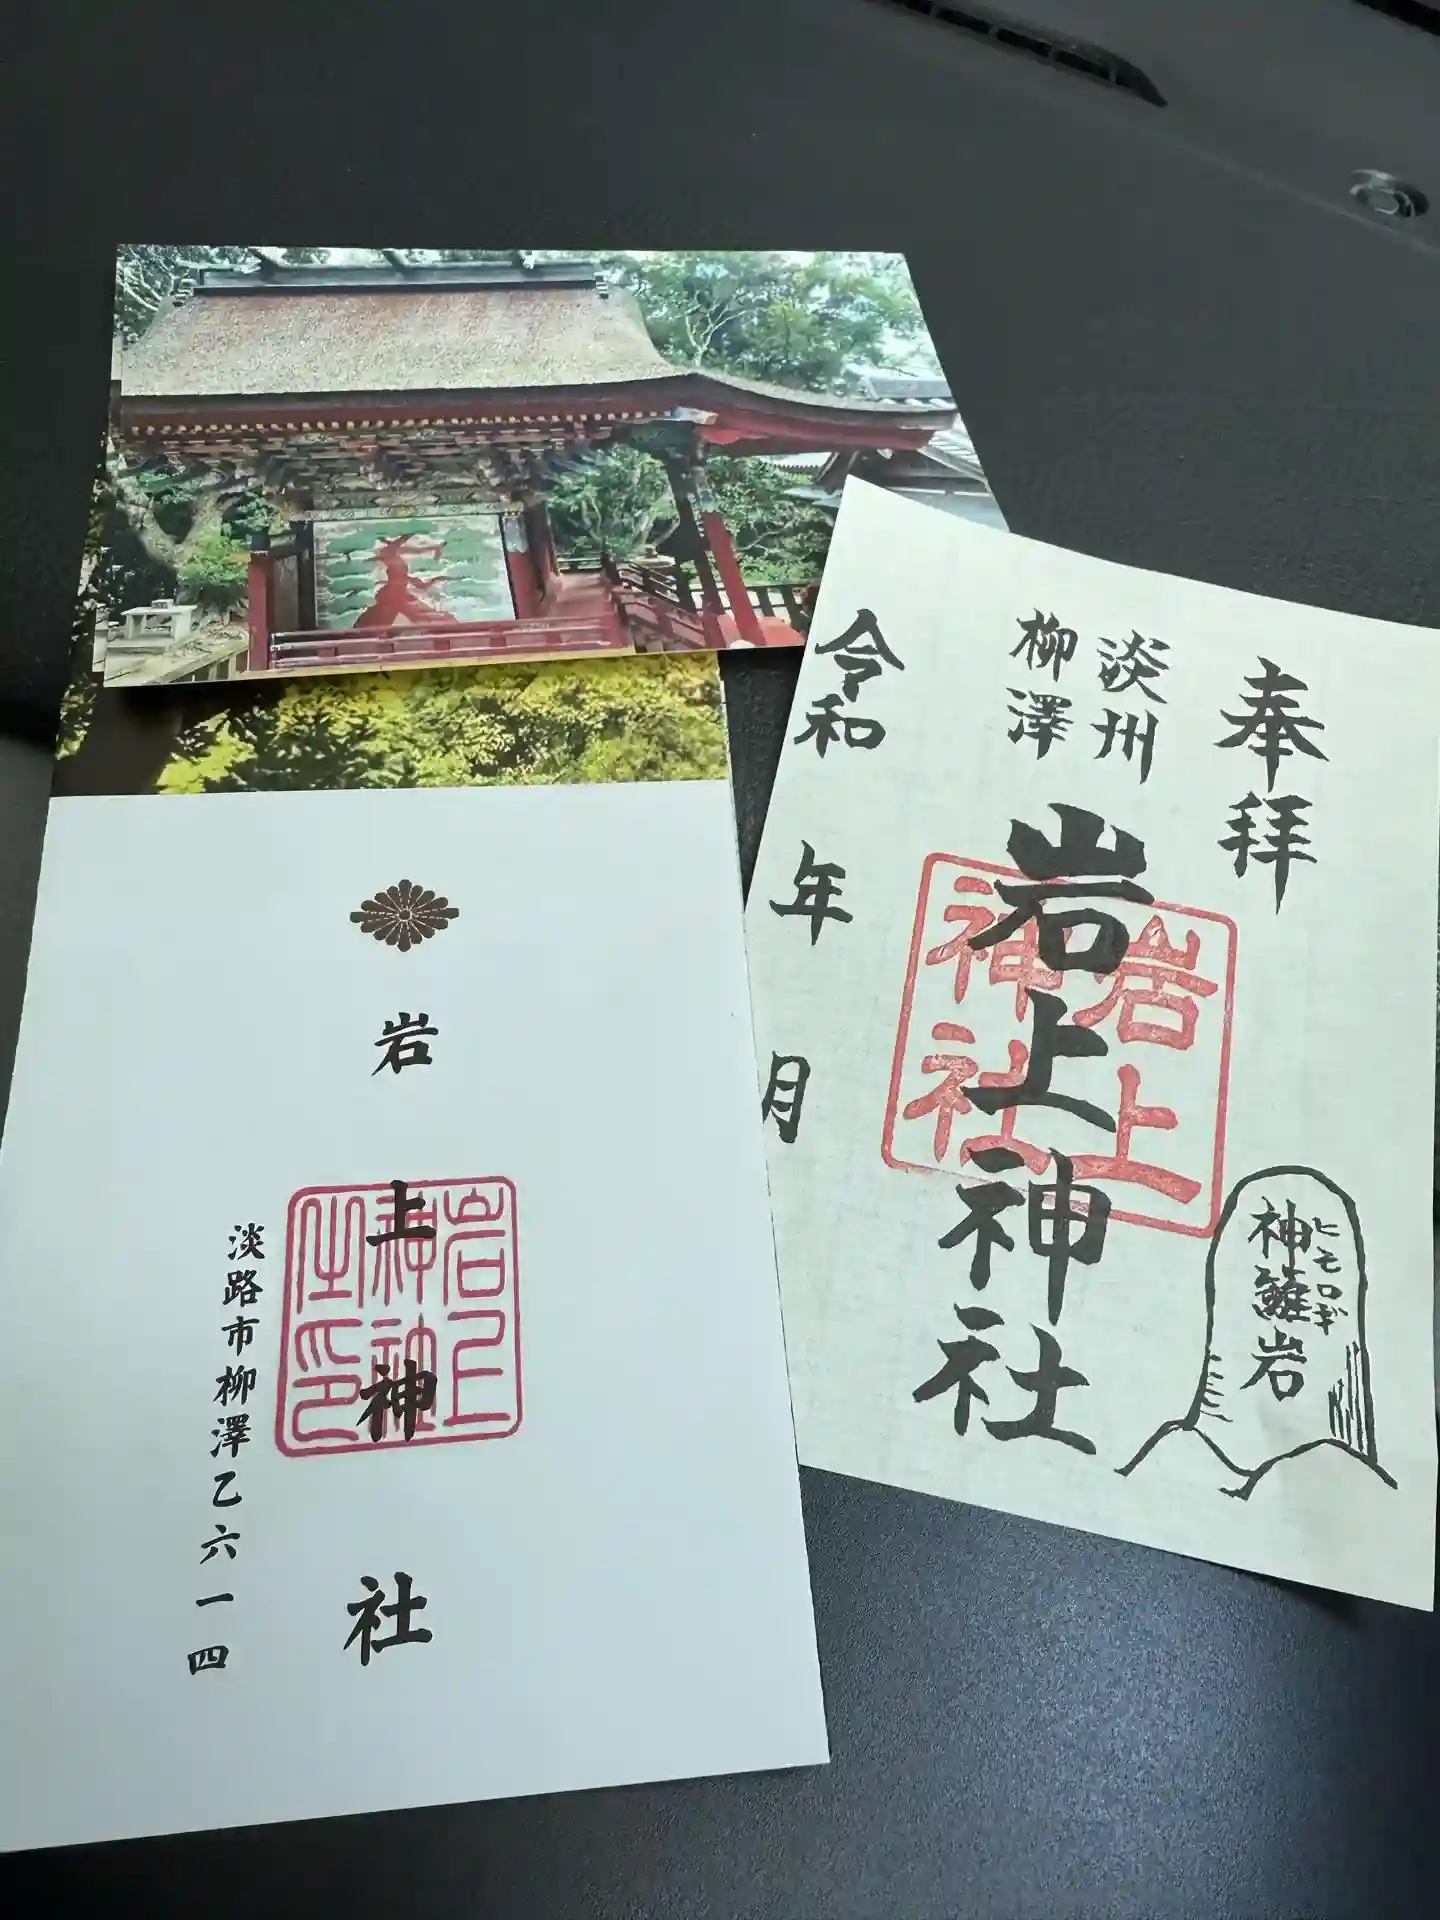 奉拝
淡州
柳澤
岩上神社
岩上
神社
令和　年　月
ヒモロギ
神籬岩
岩上神社
岩上
神社
之印
淡路市柳澤乙六一四